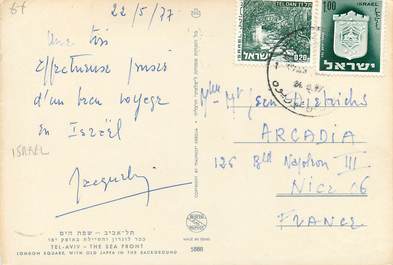 22/5/77
Une très
Affectueuse pensée
d'un beau voyage
en Israël
ISRAEL
Jacqueline
תל-אביב – שפת הים
ככר לונדון והטיילת באופק יפו
TEL-AVIV – THE SEA FRONT
LONDON SQUARE WITH OLD JAFFA IN THE BACKGROUND
MADE IN ISRAEL
5888
TEL DAN
ישראל
ISRAEL
0.20
1.00
ISRAEL
ישראל
Jean
ARCADIA
126 Bld Napoléon III
NICE 06
FRANCE